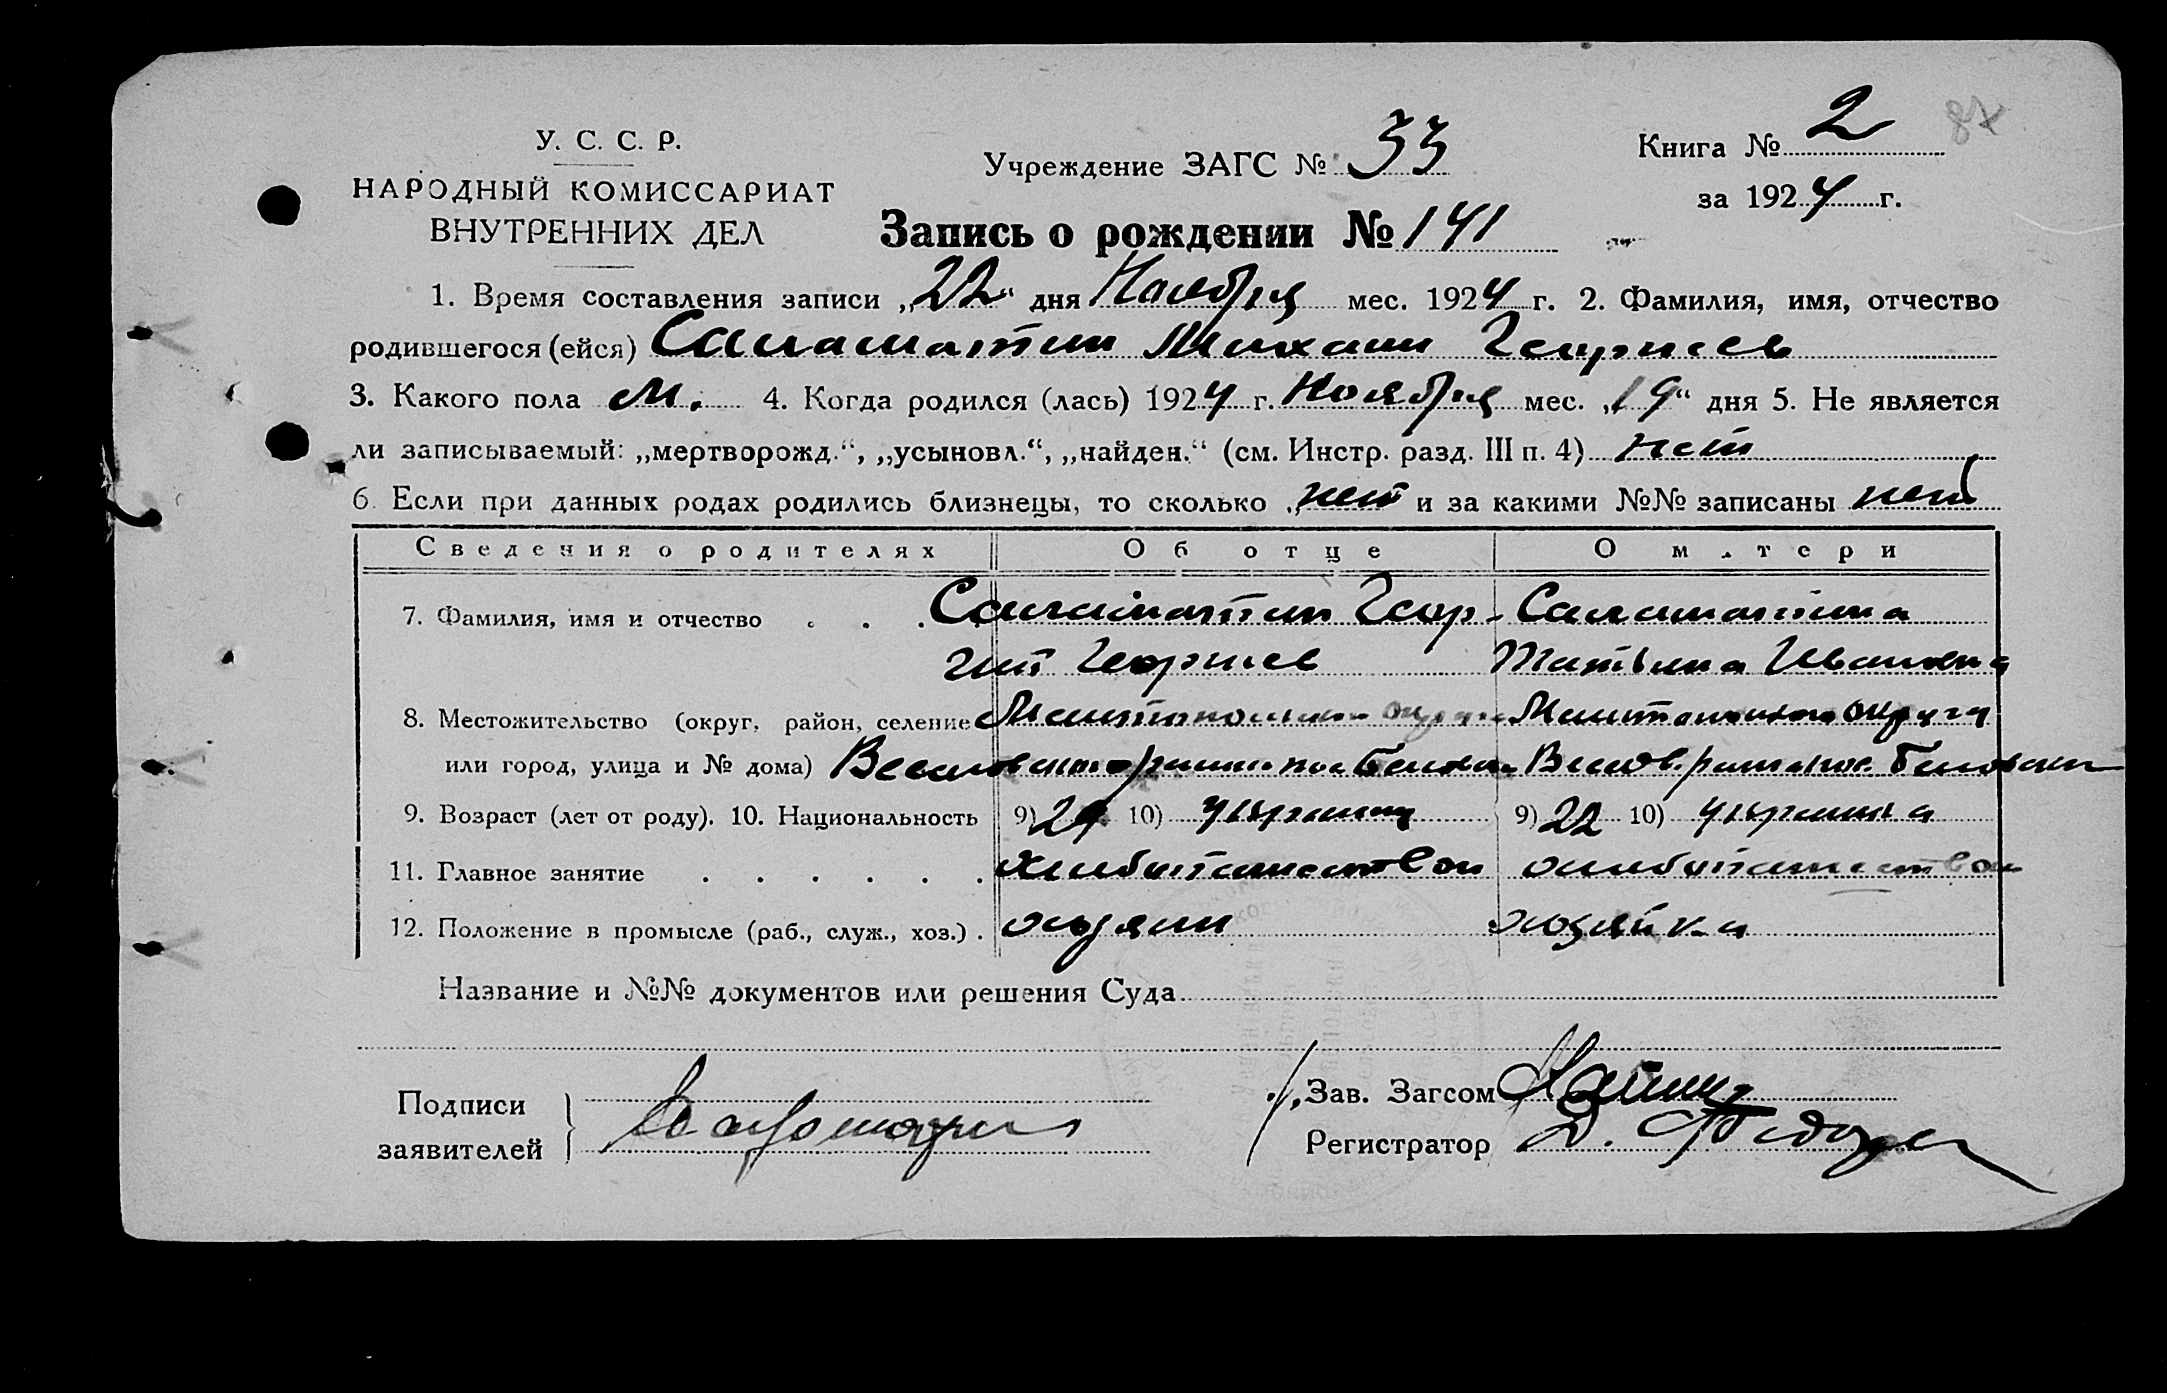 У. С. С. Р.
НАРОДНЫЙ КОМИССАРИАТ
ВНУТРЕННИХ ДЕЛ
Учреждение ЗАГС № 33
Книга № 2
87
за 1924 г.
Запись о рождении № 141
1. Время составления записи „22“ дня Ноября мес. 1924 г. 2. Фамилия, имя, отчество
родившегося (ейся) Саламатин Михаил Георгиев
3. Какого пола м. 4. Когда родился (лась) 1924 г. Ноября мес. „19“ дня 5. Не является
ли записываемый: „мертворожд.“, „усыновл.“, „найден.“ (см. Инстр. разд. III п. 4) нет
6. Если при данных родах родились близнецы, то сколько „нет и за какими №№ записаны нет
Сведения о родителях Об отце О матери
7. Фамилия, имя и отчество . . . Саламатин Геор- Саламатина
гий Георгиев Татьяна Ивановна
8. Местожительство (округ, район, селение Мелитопольского округа Мелитопольского округа
или город, улица и № дома) Веселовского района пос.
9. Возраст (лет от роду). 10. Национальность 9) 10) украинец 9) 22 10) украинка
11. Главное занятие . . . . . . хлебопашеством хлебопашеством
12. Положение в промысле (раб., служ., хоз.) . хозяин хозяйка
Название и №№ документов или решения Суда
Подписи
заявителей
Зав. Загсом
Регистратор